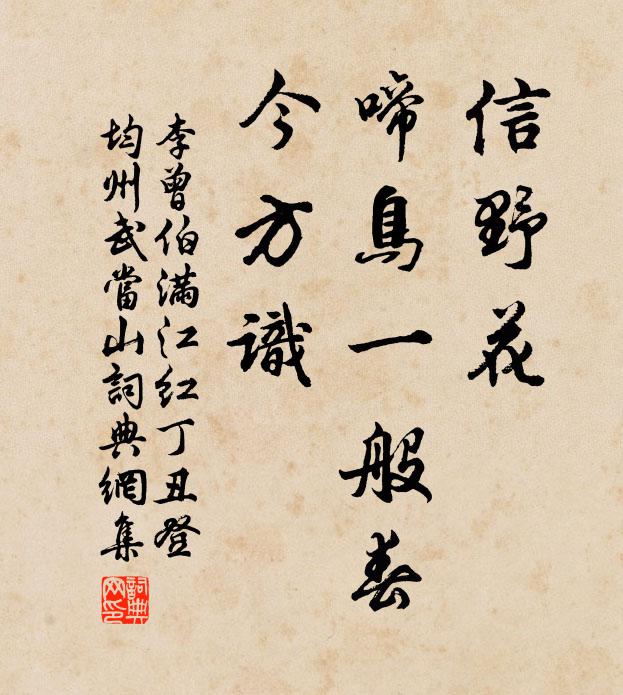 信野花
啼鳥一般春
今方識
李曾伯滿江红丁丑登
均州武當山詞典網集
詞典网印